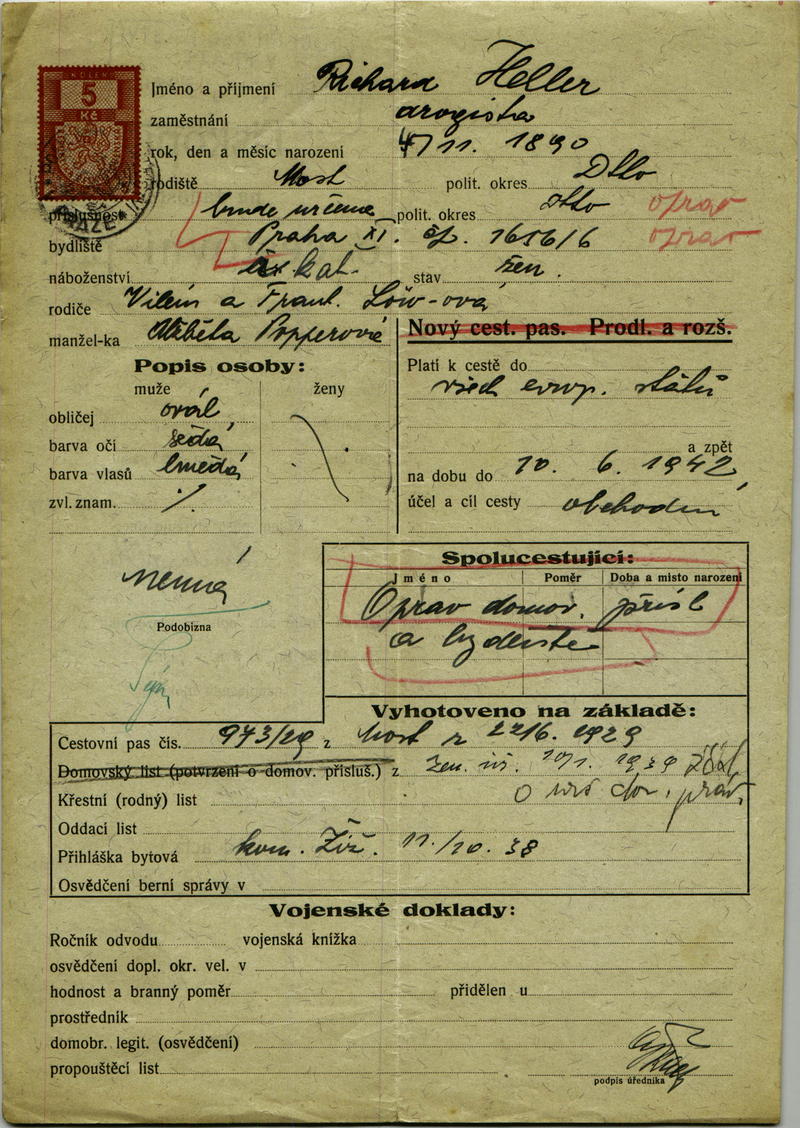 KOLEK
5
Kč
Jméno a příjmení Richard Heller
zaměstnání drogista
rok, den a měsíc narození 4/11. 1890
rodiště Most polit. okres Dtto
příslušnost bude určena polit. okres dtto oprav
bydliště Praha XI. čp. 1616/6 oprav
náboženství kat. stav žen.
rodiče Vilém a Frant. Löw-ová
manžel-ka Alžběta Popperová
Nový cest. pas. Prodl. a rozš.
Popis osoby:
muže ženy
obličej ovál
barva očí šedá
barva vlasů hnědá
zvl. znam. ·/.
Platí k cestě do
všech evrop. států
a zpět
na dobu do 10. 6. 1942
účel a cíl cesty obchodní
Podobizna
Spolucestující:
Jméno Poměr Doba a místo narození
Oprav domov. přísl
a bydliště
Vyhotoveno na základě:
Cestovní pas čís. 943/29 z Most z 22/6. 1929
Domovský list (potvrzení o domov. přísluš.) z 1939
Křestní (rodný) list o
Oddací list
Přihláška bytová kom. Žiž. 11./10. 38
Osvědčení berní správy v
Vojenské doklady:
Ročník odvodu vojenská knížka
osvědčení dopl. okr. vel. v
hodnost a branný poměr přidělen u
prostředník
domobr. legit. (osvědčení)
propouštěcí list
podpis úředníka